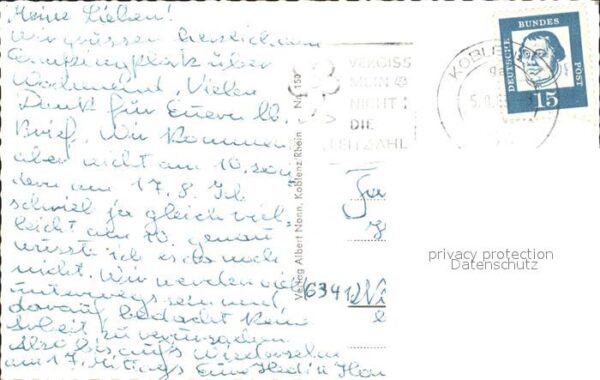 Meine Lieben!
Wir grüssen herzlich vom
Campingplatz über
Wochenend. Vielen
Dank für Euern lb.
Brief. Wir kommen
aber nicht am 10. son
dern am 17. 8. Ich
schrieb ja gleich viel-
leicht am 10. genau
wusst ich es da noch
nicht. Wir werden viel
unterwegs sein und
darauf bedacht keine
Arbeit zu verursachen
Also bis aufs Wiedersehn
am 17. Mittags Eure Hedi u
Verlag Albert Nonn, Koblenz/Rhein Nr. 159
VERGISS
MEIN
NICHT
DIE
LEITZAHL
KOBLENZ
5.
DEUTSCHE BUNDESPOST
15
(6341)
privacy protection
Datenschutz